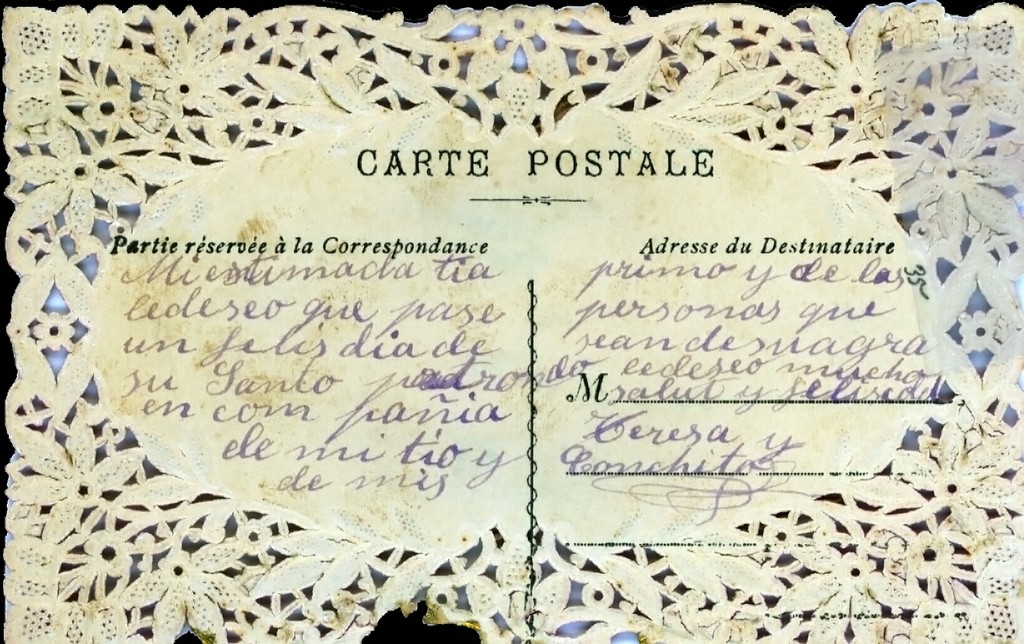 CARTE POSTALE
Partie réservée à la Correspondance
Mi estimada tia
ledeseo que pase
un felis dia de
su Santo padrondo
en com pañia
de mi tio y
de mis
Adresse du Destinataire
primo y de las
personas que
sean desuagra
ledeseo mucho
M salut y felisida
Teresa y
Conchita
35